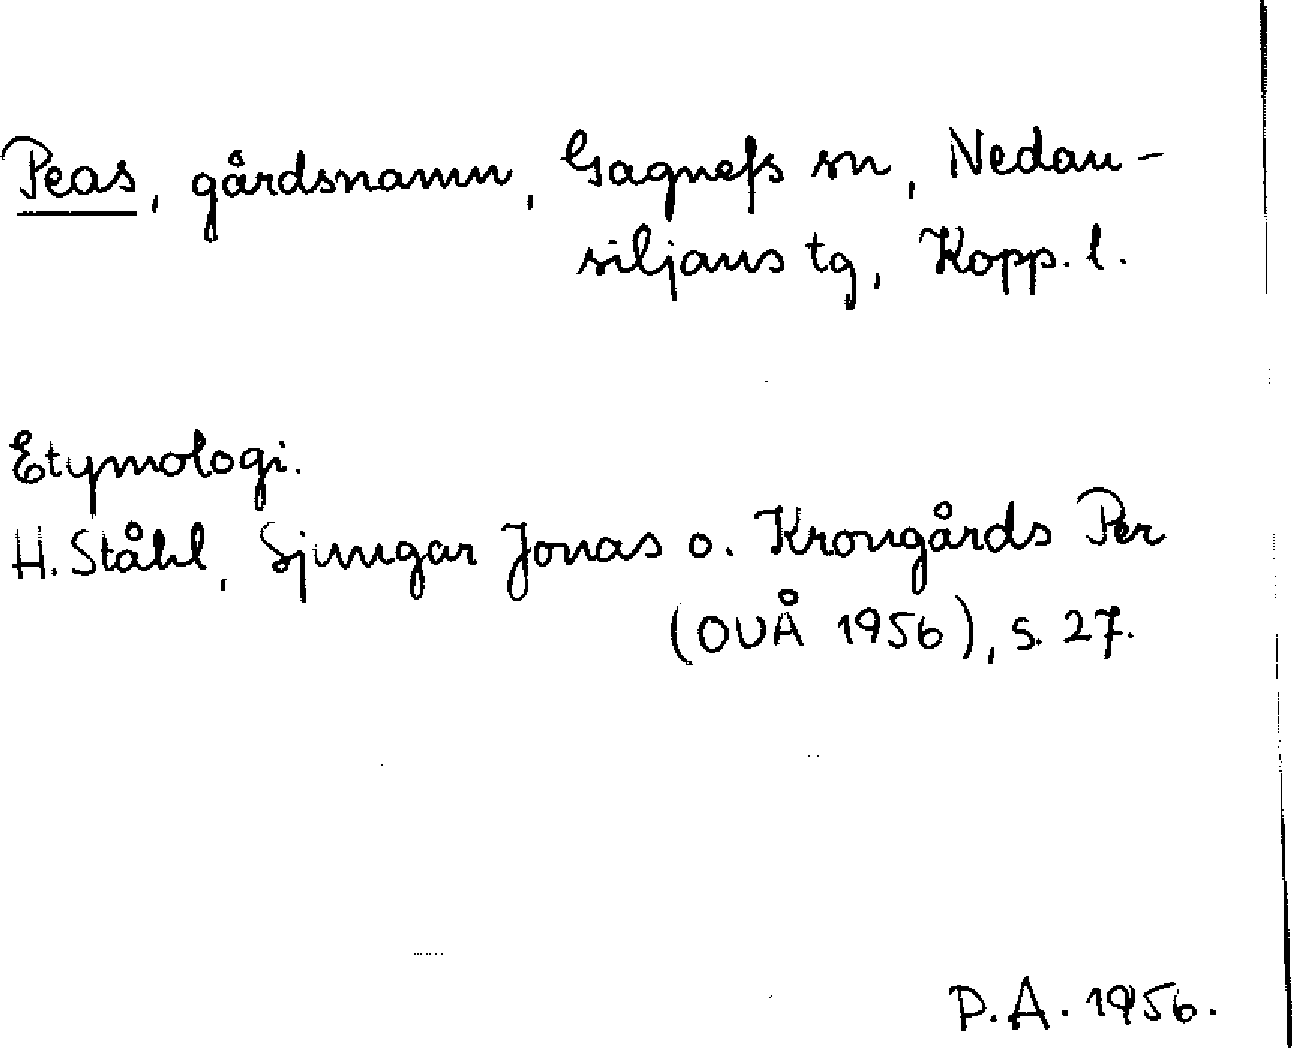 Peas, gårdsnamn, Gagnefs sn, Nedan-
siljans tg, Kopp. l.
Etymologi.
H. Ståhl, Sjungar Jonas o. Krongårds Per
(OUÅ 1956), s. 27.
P.A. 1956.